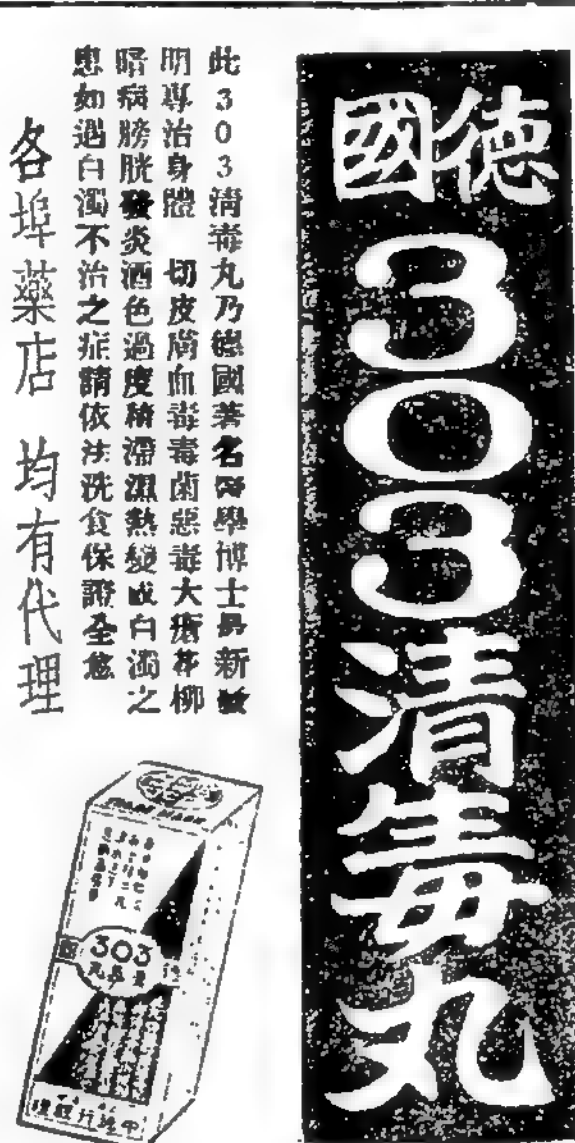 德國
303清毒丸
此303清毒丸乃德國著名醫學博士最新發
明專治身體 切皮膚血毒毒菌惡毒大瘡花柳
暗病膀胱發炎酒色過度積滯濕熱變成白濁之
患如遇白濁不治之症請依法洗食保證全愈
各埠藥店 均有代理
303